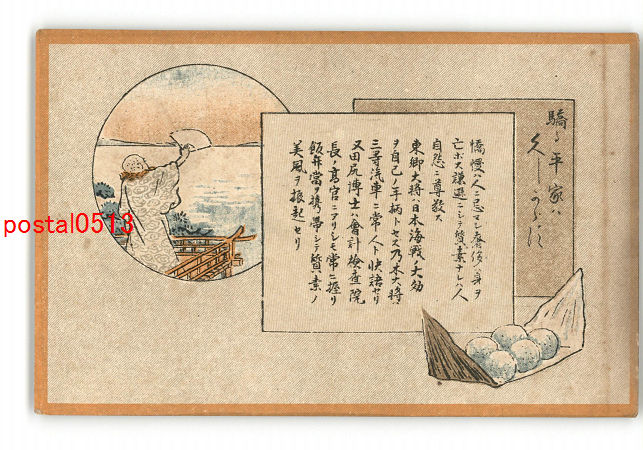 驕る平家ハ
久しからず
憍慢ハ人ニ忌マレ奢侈ハ身ヲ
亡ホス謙遜ニシテ質素ナレハ人
自然ニ尊敬ス
東郷大将ハ日本海戦ノ大功
ヲ自己ノ手柄トセス乃木大将ハ
三等汽車ニ常人ト快諾セリ
又田尻博士ハ會計検査院
長ノ高官ニアリシモ常ニ握リ
飯弁當ヲ携ヘ帯シテ質素ノ
美風ヲ振起セリ
postal0513